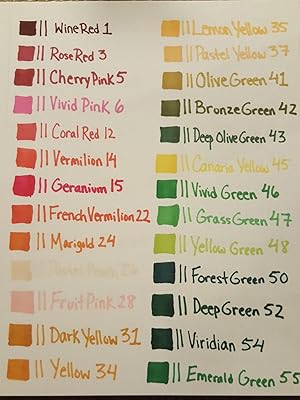 Wine Red 1
Rose Red 3
Cherry Pink 5
Vivid Pink 6
Coral Red 12
Vermilion 14
Geranium 15
French Vermilion 22
Marigold 24
Pastel Peach 26
Fruit Pink 28
Dark Yellow 31
Yellow 34
Lemon Yellow 35
Pastel Yellow 37
Olive Green 41
Bronze Green 42
Deep Olive Green 43
Canaria Yellow 45
Vivid Green 46
Grass Green 47
Yellow Green 48
Forest Green 50
Deep Green 52
Viridian 54
Emerald Green 55